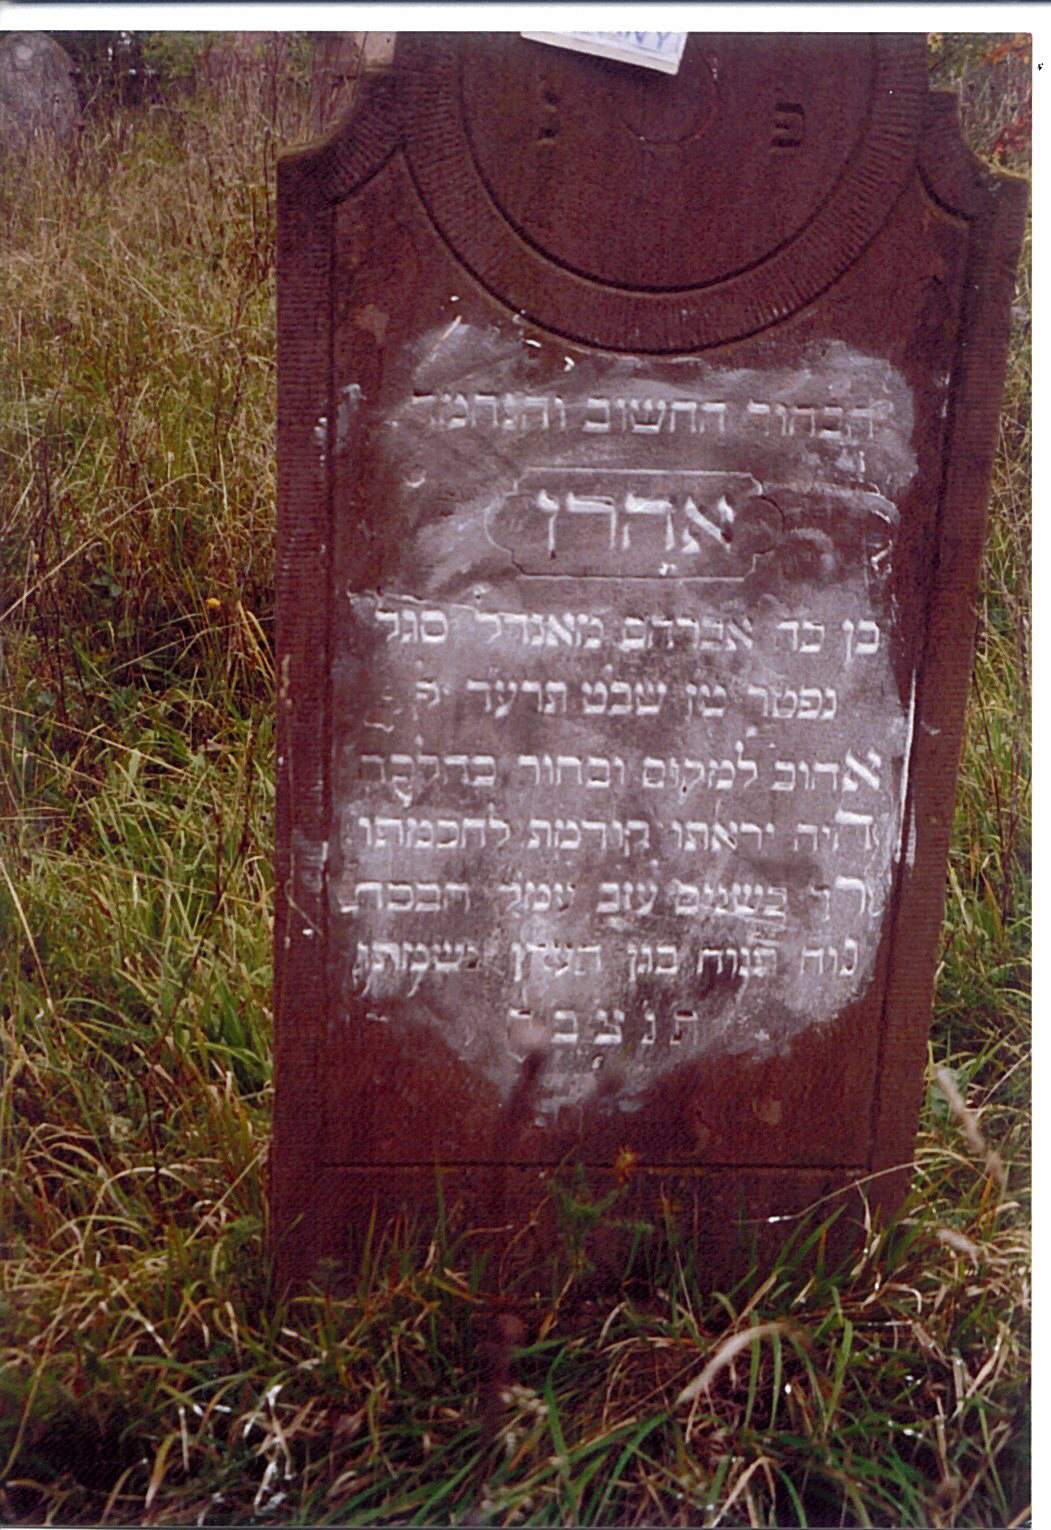 פ נ
הבחור החשוב והנחמד
אהרן
בן כד אברהם מאנדל סגל
נפטר טו שבט תרעד
אהוב למקום ובחור כהלכה
היה יראתו קודמת לחכמתו
רך בשנים עמל
נוח תנוח בגן העדן נשמתו
ת נ צ ב ה